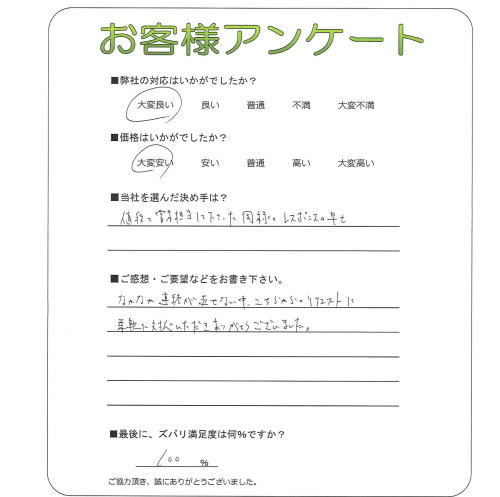 お客様アンケート
■弊社の対応はいかがでしたか？
大変良い 良い 普通 不満 大変不満
■価格はいかがでしたか？
大変安い 安い 普通 高い 大変高い
■当社を選んだ決め手は？
値段と営業担当して下さった岡様のレスポンスの早さ
■ご感想・ご要望などをお書き下さい。
なかなか連絡が返せない中、こちらからのリクエストに
柔軟に対応いただきありがとうございました。
■最後に、ズバリ満足度は何％ですか？
100 ％
ご協力頂き、誠にありがとうございました。